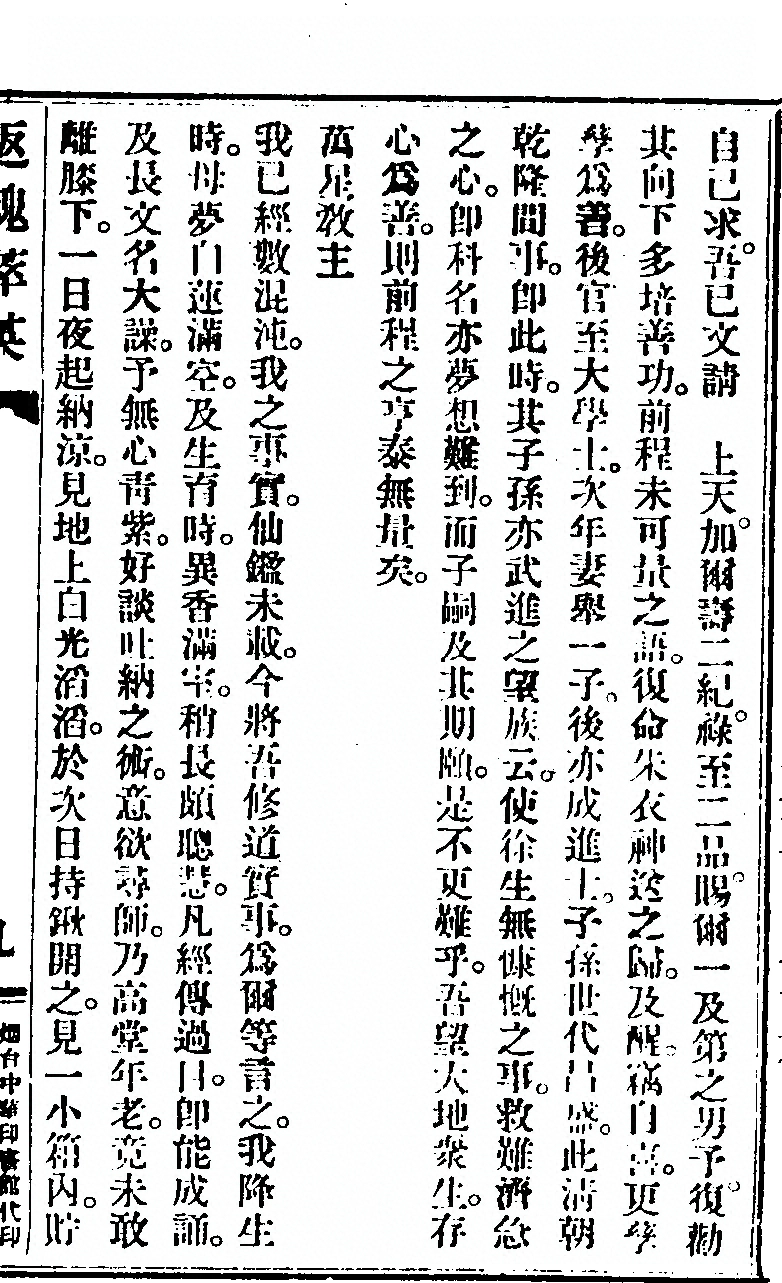 自己求。吾已文請　上天。加爾壽二紀。祿至二品。賜爾一及第之男子。復勸
其向下多培善功。前程未可量之語。復命朱衣神送之歸。及醒。竊自喜。更孳
孳爲善。後官至大學士。次年妻舉一子。後亦成進士。子孫世代昌盛。此淸朝
乾隆間事。卽此時。其子孫亦武進之望族云。使徐生無慷慨之事。救難濟急
之心。卽科名亦夢想難到。而子嗣及其期頤。是不更難乎。吾望大地衆生。存
心爲善。則前程之亨泰無量矣。
萬星敎主
我已經數混沌。我之事實。仙鑑未載。今將吾修道實事。爲爾等言之。我降生
時。母夢白蓮滿空。及生育時。異香滿室。稍長頗聰慧。凡經傳過目。卽能成誦。
及長文名大譟。予無心靑紫。好談吐納之術。意欲尋師。乃高堂年老。竟未敢
離膝下。一日夜起納涼。見地上白光滔滔。於次日持鍬開之。見一小箱。內貯
返魂萃英
九
烟台中華印書館代印